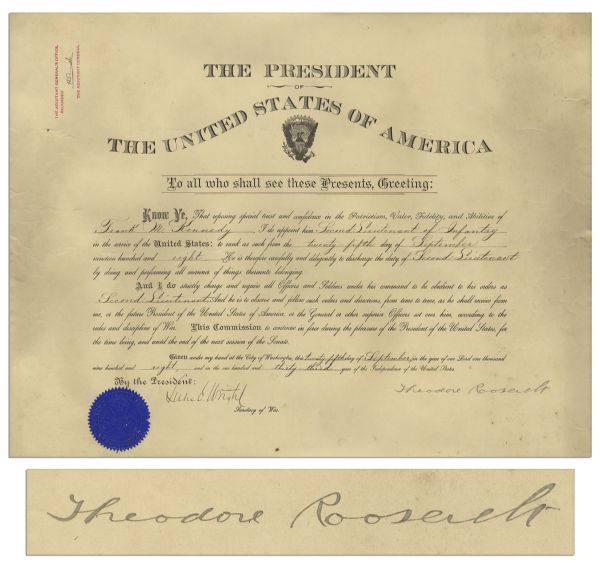 THE ADJUTANT GENERAL'S OFFICE,
RECORDED
THE ADJUTANT GENERAL.
THE PRESIDENT
OF
THE UNITED STATES OF AMERICA
To all who shall see these Presents, Greeting:
Know Ye, That reposing special trust and confidence in the Patriotism, Valor, Fidelity, and Abilities of
Frank M. Kennedy I do appoint him Second Lieutenant of Infantry
in the service of the United States: to rank as such from the twenty fifth day of September
nineteen hundred and eight He is therefore carefully and diligently to discharge the duty of Second Lieutenant
by doing and performing all manner of things thereunto belonging.
And I do strictly charge and require all Officers and Soldiers under his command to be obedient to his orders as
Second Lieutenant And he is to observe and follow such orders and directions, from time to time, as he shall receive from
me, or the future President of the United States of America, or the General or other superior Officers set over him, according to the
rules and discipline of War. This Commission to continue in force during the pleasure of the President of the United States, for
the time being, and until the end of the next session of the Senate.
Given under my hand at the City of Washington, this twenty fifth day of September, in the year of our Lord one thousand
nine hundred and eight, and in the one hundred and thirty third year of the Independence of the United States.
By the President:
Theodore Roosevelt
Luke E Wright
Secretary of War.
Theodore Roosevelt